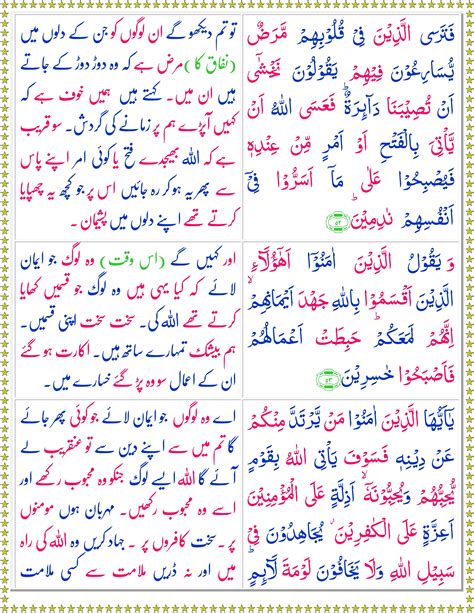 فَتَرَى الَّذِيْنَ فِيْ قُلُوْبِهِمْ مَّرَضٌ
يُّسَارِعُوْنَ فِيْهِمْ يَقُوْلُوْنَ نَخْشٰٓى
اَنْ تُصِيْبَنَا دَآىِٕرَةٌ ؕ فَعَسَى اللّٰهُ اَنْ
يَّاْتِيَ بِالْفَتْحِ اَوْ اَمْرٍ مِّنْ عِنْدِهٖ
فَيُصْبِحُوْا عَلٰى مَاۤ اَسَرُّوْا فِيْۤ
اَنْفُسِهِمْ نٰدِمِيْنَ ؕ ۵۲
تو تم دیکھو گے ان لوگوں کو جن کے دلوں میں
(نفاق کا) مرض ہے کہ وہ دوڑ دوڑ کے جاتے
ہیں ان میں۔ کہتے ہیں ہمیں خوف ہے کہ
کہیں آپڑے ہم پر زمانے کی گردش۔ سو قریب
ہے کہ اللہ بھیجدے فتح یا کوئی امر اپنے پاس
سے پھر یہ ہو کر رہ جائیں اس پر جو کچھ یہ چھپایا
کرتے تھے اپنے دلوں میں پشیمان۔
وَ يَقُوْلُ الَّذِيْنَ اٰمَنُوْۤا اَهٰۤؤُلَآءِ
الَّذِيْنَ اَقْسَمُوْا بِاللّٰهِ جَهْدَ اَيْمَانِهِمْ ۙ
اِنَّهُمْ لَمَعَكُمْ ؕ حَبِطَتْ اَعْمَالُهُمْ
فَاَصْبَحُوْا خٰسِرِيْنَ ۵۳
اور کہیں گے (اس وقت) وہ لوگ جو ایمان
لائے کہ کیا یہی ہیں وہ لوگ جو قسمیں کھایا
کرتے تھے اللہ کی۔ سخت سخت اپنی قسمیں۔
ہم بیشک تمہارے ساتھ ہیں۔ اکارت ہو گئے
ان کے اعمال سو وہ پڑ گئے خسارے میں۔
يٰۤاَيُّهَا الَّذِيْنَ اٰمَنُوْا مَنْ يَّرْتَدَّ مِنْكُمْ
عَنْ دِيْنِهٖ فَسَوْفَ يَاْتِي اللّٰهُ بِقَوْمٍ
يُّحِبُّهُمْ وَيُحِبُّوْنَهٗۤ ۙ اَذِلَّةٍ عَلَى الْمُؤْمِنِيْنَ
اَعِزَّةٍ عَلَى الْكٰفِرِيْنَ ؗ يُجَاهِدُوْنَ فِيْ
سَبِيْلِ اللّٰهِ وَلَا يَخَافُوْنَ لَوْمَةَ لَآىِٕمٍ ؕ
اے وہ لوگوں جو ایمان لائے جو کوئی پھر جائے
گا تم میں سے اپنے دین سے تو عنقریب لے
آئے گا اللہ ایسے لوگ جنکو وہ محبوب رکھے اور
اسے وہ محبوب رکھیں۔ مہربان ہوں مومنوں
پر۔ سخت کافروں پر۔ جہاد کریں وہ اللہ کی راہ
میں اور نہ ڈریں ملامت سے کسی ملامت